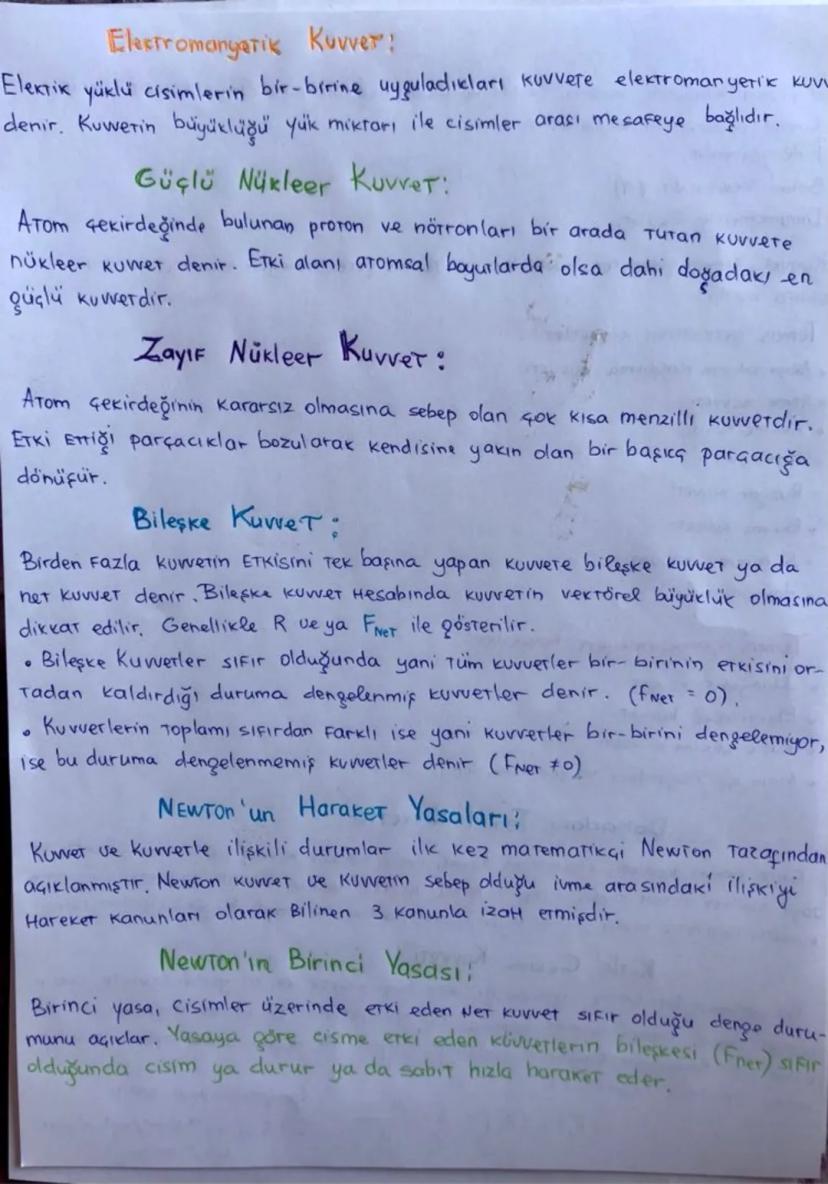 Elektromanyetik Kuvvet:
Elektik yüklü cisimlerin bir-birine uyguladıkları kuvvete elektromanyetik kuvv
denir. Kuvvetin büyüklüğü yük miktarı ile cisimler arası mesafeye bağlıdır.
Güçlü Nükleer Kuvvet:
Atom çekirdeğinde bulunan proton ve nötronları bir arada tutan kuvvete
nükleer kuvvet denir. Etki alanı atomsal boyutlarda olsa dahi doğadaki en
güçlü kuvvetdir.
Zayıf Nükleer Kuvvet:
Atom çekirdeğinin kararsız olmasına sebep olan çok kısa menzilli kuvvetdir.
Etki ettiği parçacıklar bozularak kendisine yakın olan bir başka parçacığa
dönüşür.
Bileşke Kuvvet:
Birden fazla kuvvetin etkisini tek başına yapan kuvvete bileşke kuvvet ya da
net kuvvet denir. Bileşke kuvvet hesabında kuvvetin vektörel büyüklük olmasına
dikkat edilir. Genellikle R veya FNet ile gösterilir.
• Bileşke Kuvvetler sıfır olduğunda yani tüm kuvvetler bir-birinin etkisini or-
tadan kaldırdığı duruma dengelenmiş kuvvetler denir. (fNet = 0).
• Kuvvetlerin toplamı sıfırdan farklı ise yani kuvvetler bir-birini dengelemiyor,
ise bu duruma dengelenmemiş kuvvetler denir (FNet ≠0)
Newton'un Haraket Yasaları:
Kuvvet ve kuvvetle ilişkili durumlar ilk kez matematikçi Newton tarafından
açıklanmıştır. Newton kuvvet ve kuvvetin sebep olduğu ivme arasındaki ilişkiyi
Hareket kanunları olarak Bilinen 3 kanunla izah etmişdir.
Newton'ın Birinci Yasası:
Birinci yasa, cisimler üzerinde etki eden Net kuvvet sıfır olduğu denge duru-
munu açıklar. Yasaya göre cisme etki eden küvvetlerin bileşkesi (Fnet) sıfır
olduğunda cisim ya durur ya da sabit hızla haraket eder.